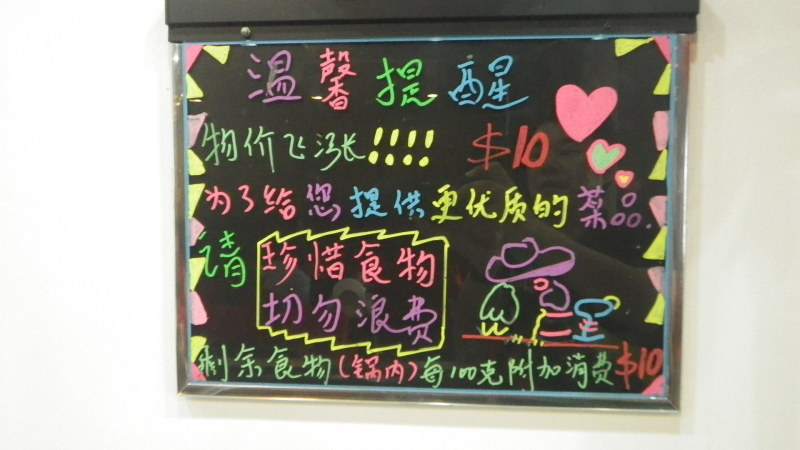 温馨提醒
物价飞涨!!!! $10
为了给您提供更优质的菜品.
请 珍惜食物
切勿浪费
剩余食物(锅内)每100克附加消费$10